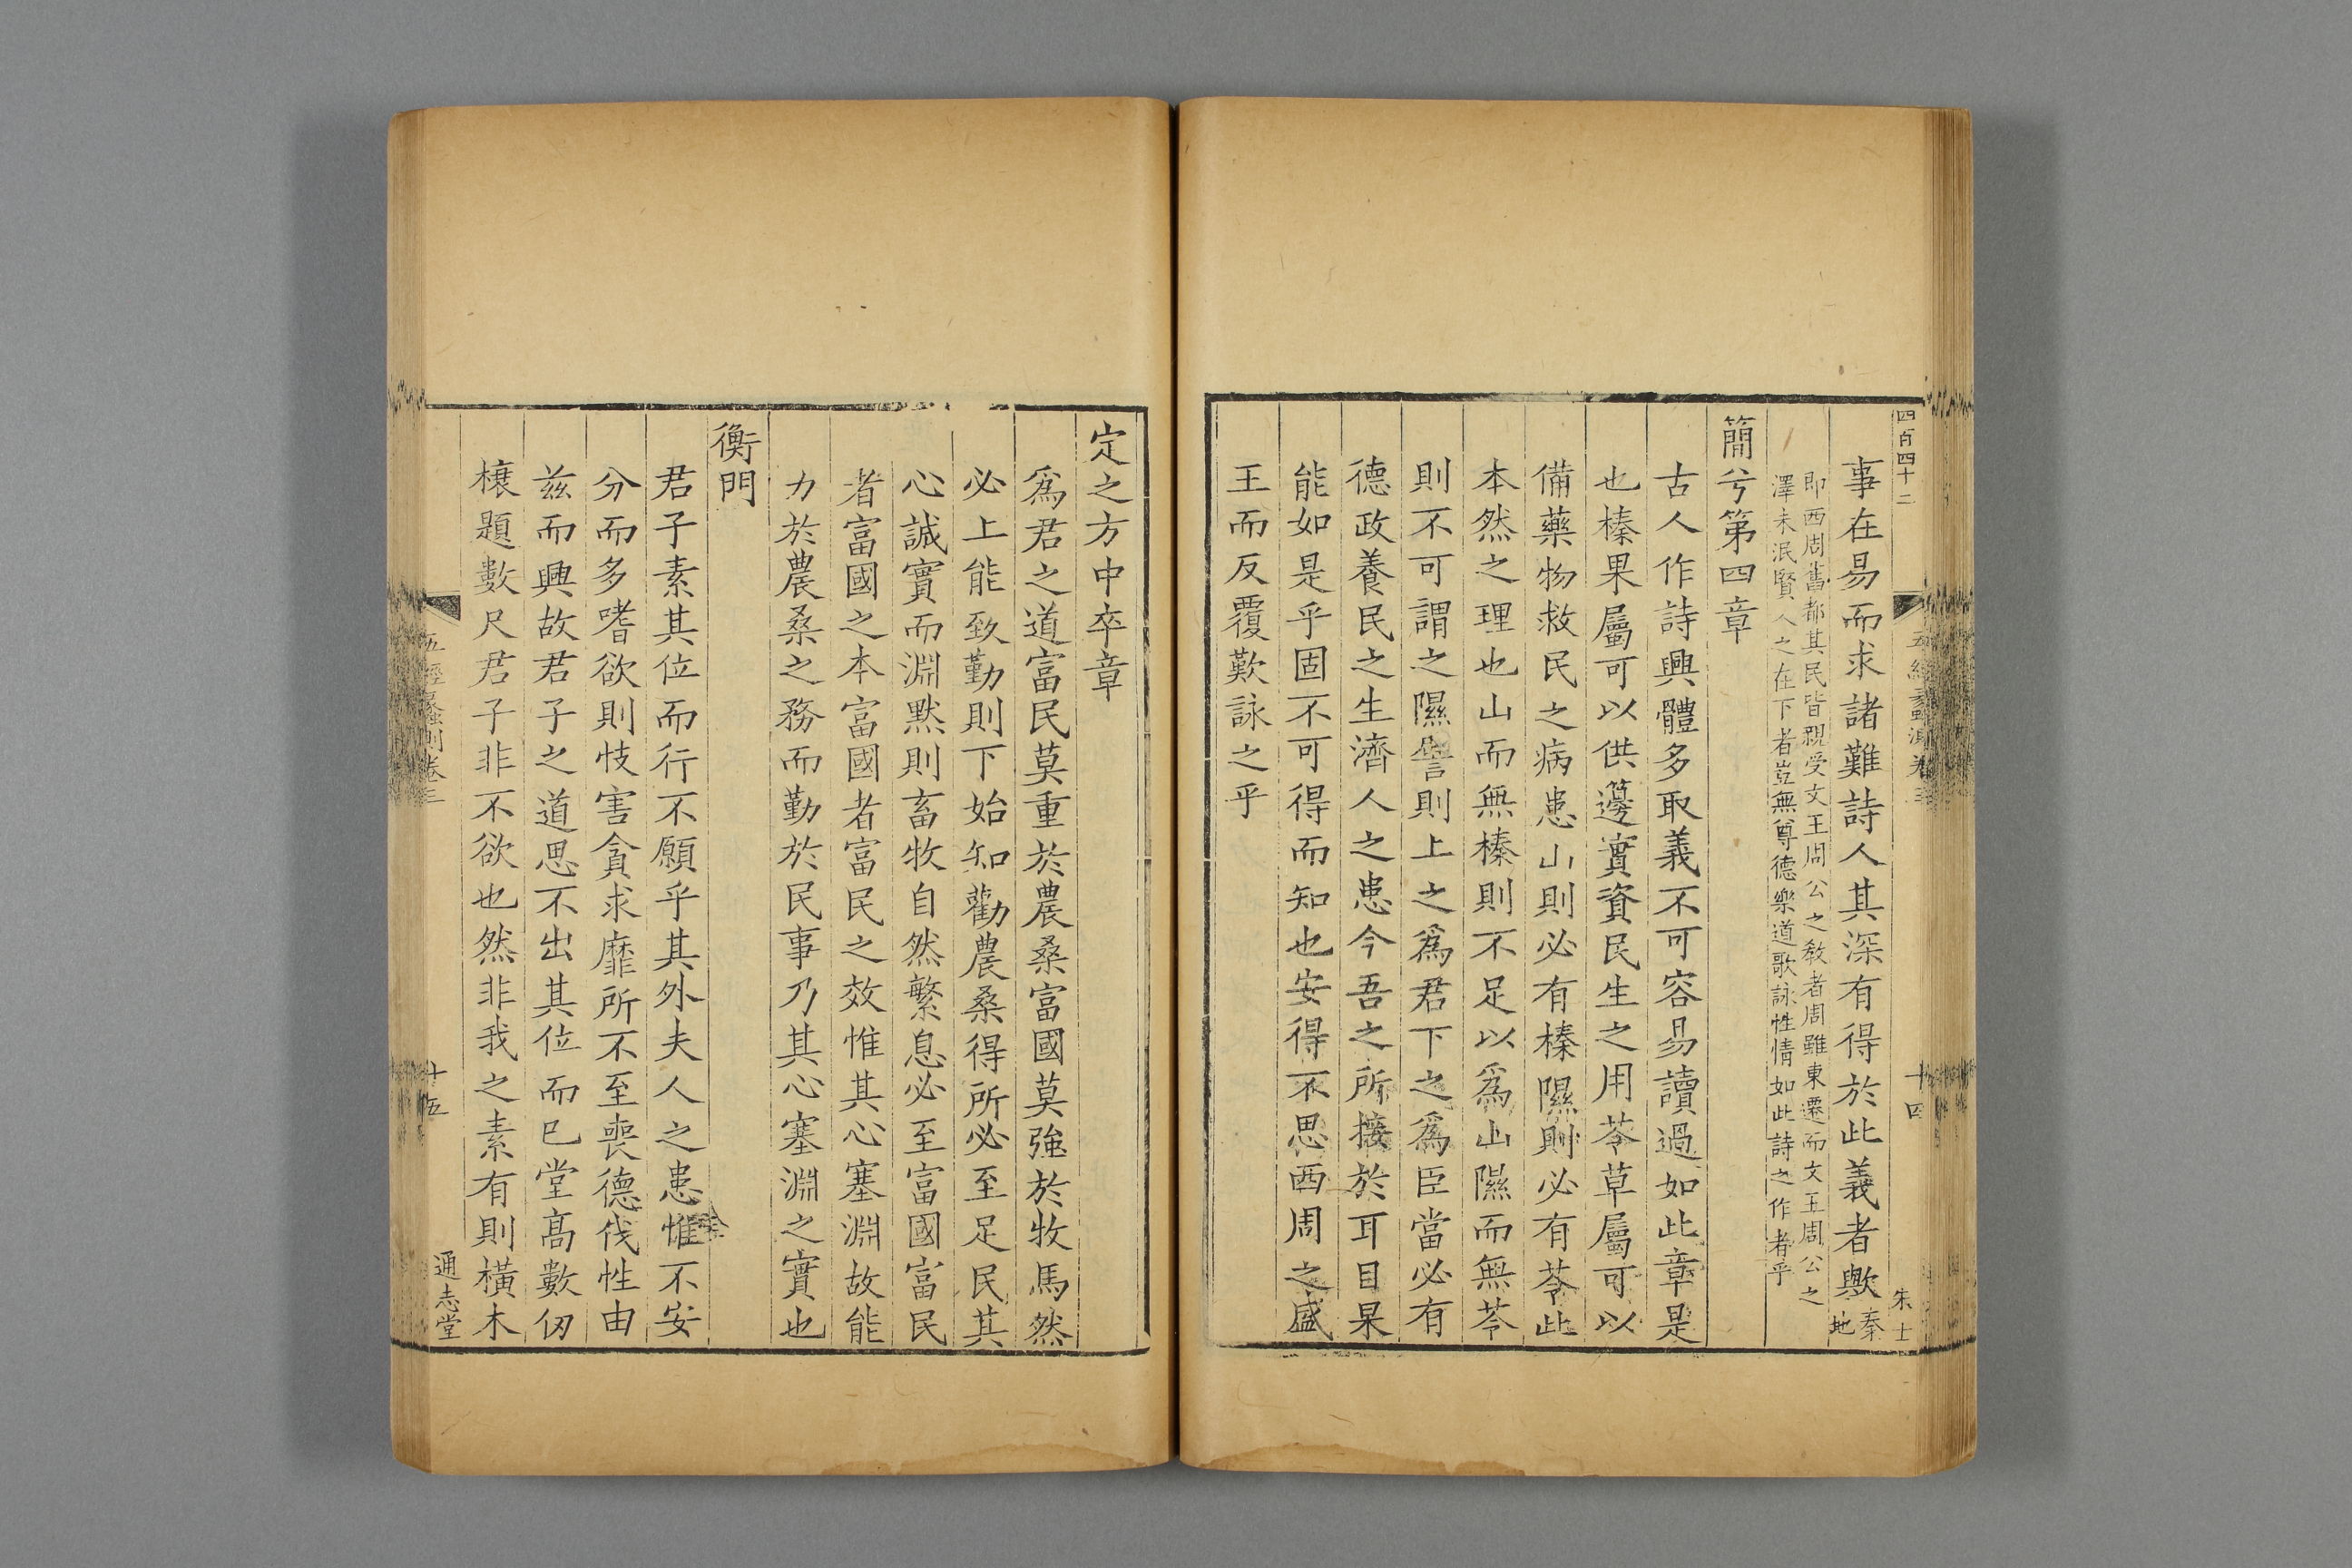 四百四十二
五經蠡測卷三
十四
朱士
事在易而求諸難詩人其深有得於此義者歟秦地
即西周舊都其民皆親受文王周公之教者周雖東遷而文王周公之
澤未泯賢人之在下者豈無尊德樂道歌詠性情如此詩之作者乎
簡兮第四章
古人作詩興體多取義不可容易讀過如此章是
也榛果屬可以供籩實資民生之用苓草屬可以
備藥物救民之病患山則必有榛隰則必有苓此
本然之理也山而無榛則不足以為山隰而無苓
則不可謂之隰譬則上之為君下之為臣當必有
德政養民之生濟人之患今吾之所接於耳目果
能如是乎固不可得而知也安得不思西周之盛
王而反覆歎詠之乎
定之方中卒章
為君之道富民莫重於農桑富國莫強於牧馬然
必上能致勤則下始知勸農桑得所必至足民其
心誠實而淵默則畜牧自然繁息必至富國富民
者富國之本富國者富民之效惟其心塞淵故能
力於農桑之務而勤於民事乃其心塞淵之實也
衡門
君子素其位而行不願乎其外夫人之患惟不安
分而多嗜欲則忮害貪求靡所不至喪德伐性由
茲而興故君子之道思不出其位而已堂高數仞
榱題數尺君子非不欲也然非我之素有則橫木
五經蠡測卷三
十五
通志堂